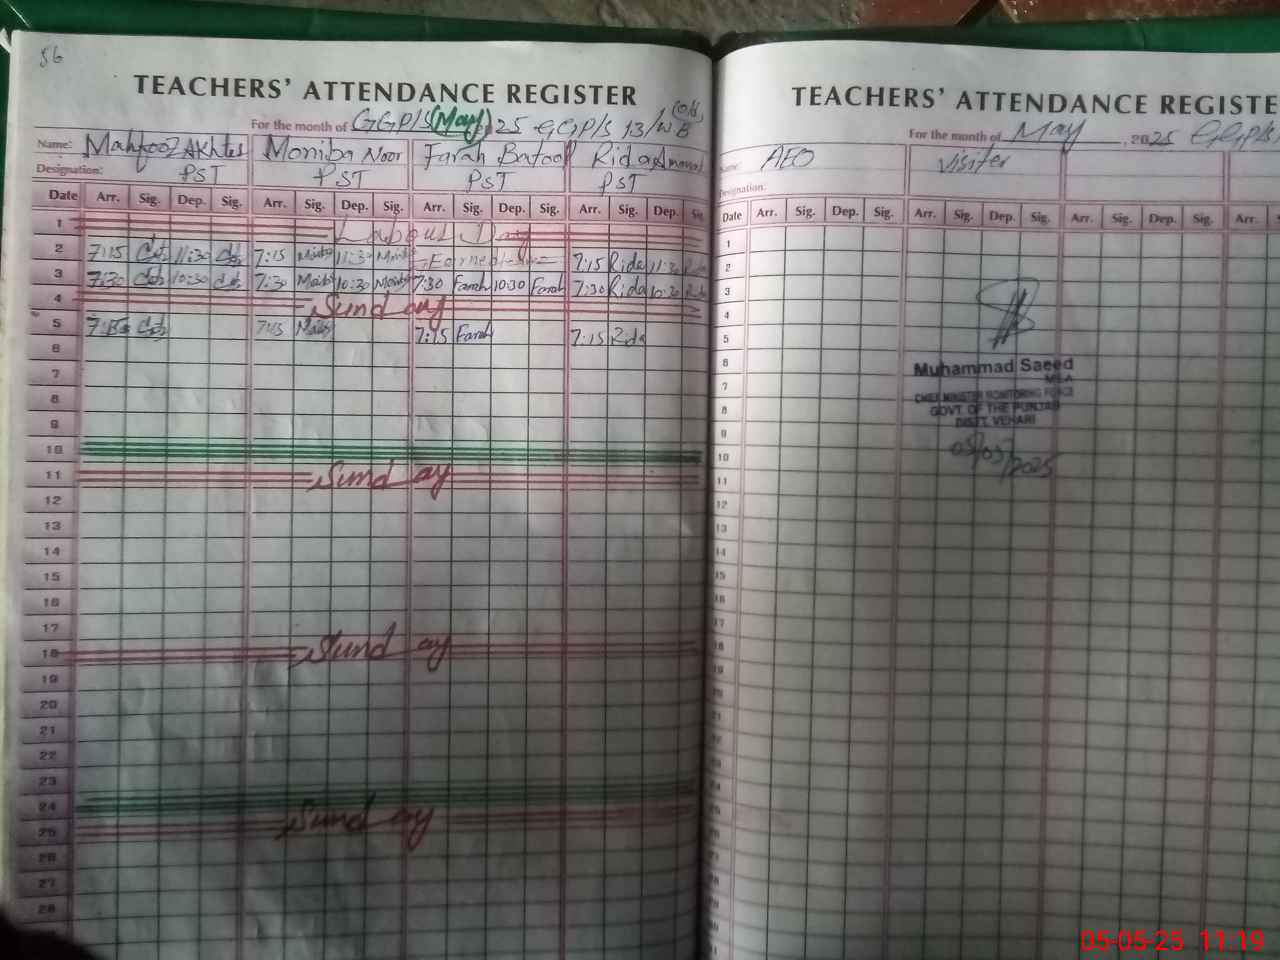 56
TEACHERS' ATTENDANCE REGISTER
For the month of GGP/S (May), 25 GGP/S 13/WB
Name: Mahfooz Akhter Moniba Noor Farah Batool Rida
Designation: PST PST PST PST
Date Arr. Sig. Dep. Sig. Arr. Sig. Dep. Sig. Arr. Sig. Dep. Sig. Arr. Sig. Dep. Sig.
1 Labour Day
2 7:15 11:30 7:15 11:30 7:15 Rida 11:30 Rida
3 7:30 10:30 7:30 10:30 7:30 Farah 10:30 Farah 7:30 Rida 10:30 Rida
4 Sunday
5 7:15 7:15 7:15 Farah 7:15 Rida
6
7
8
9
10
11 Sunday
12
13
14
15
16
17
18 Sunday
19
20
21
22
23
24
25 Sunday
26
27
28
TEACHERS' ATTENDANCE REGISTE
For the month of May, 2025 GGP/S
Name: AEO visiter
Designation:
Date Arr. Sig. Dep. Sig. Arr. Sig. Dep. Sig. Arr. Sig. Dep. Sig. Arr. Si
1
2
3
4
5
6
7
8
9
10
11
12
13
14
15
16
17
18
19
Muhammad Saeed
MEA
CHIEF MINISTER MONITORING FORCE
GOVT. OF THE PUNJAB
DISTT. VEHARI
05-05-25 11:19